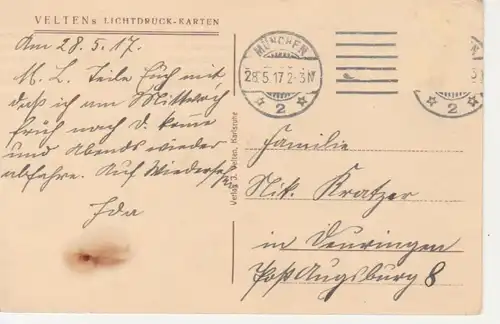 VELTENs LICHTDRUCK-KARTEN
Am 28.5.17.
M. L. Teile Euch mit
daß ich am Mittwoch
früh nach D. komme
und Abends wieder
abfahre. Auf Wiederseh
Ida
Verlag J. Velten, Karlsruhe
MÜNCHEN
28.5.17 2-3N
2
Familie
Nik. Kratzer
in Deuringen
Post Augsburg 8